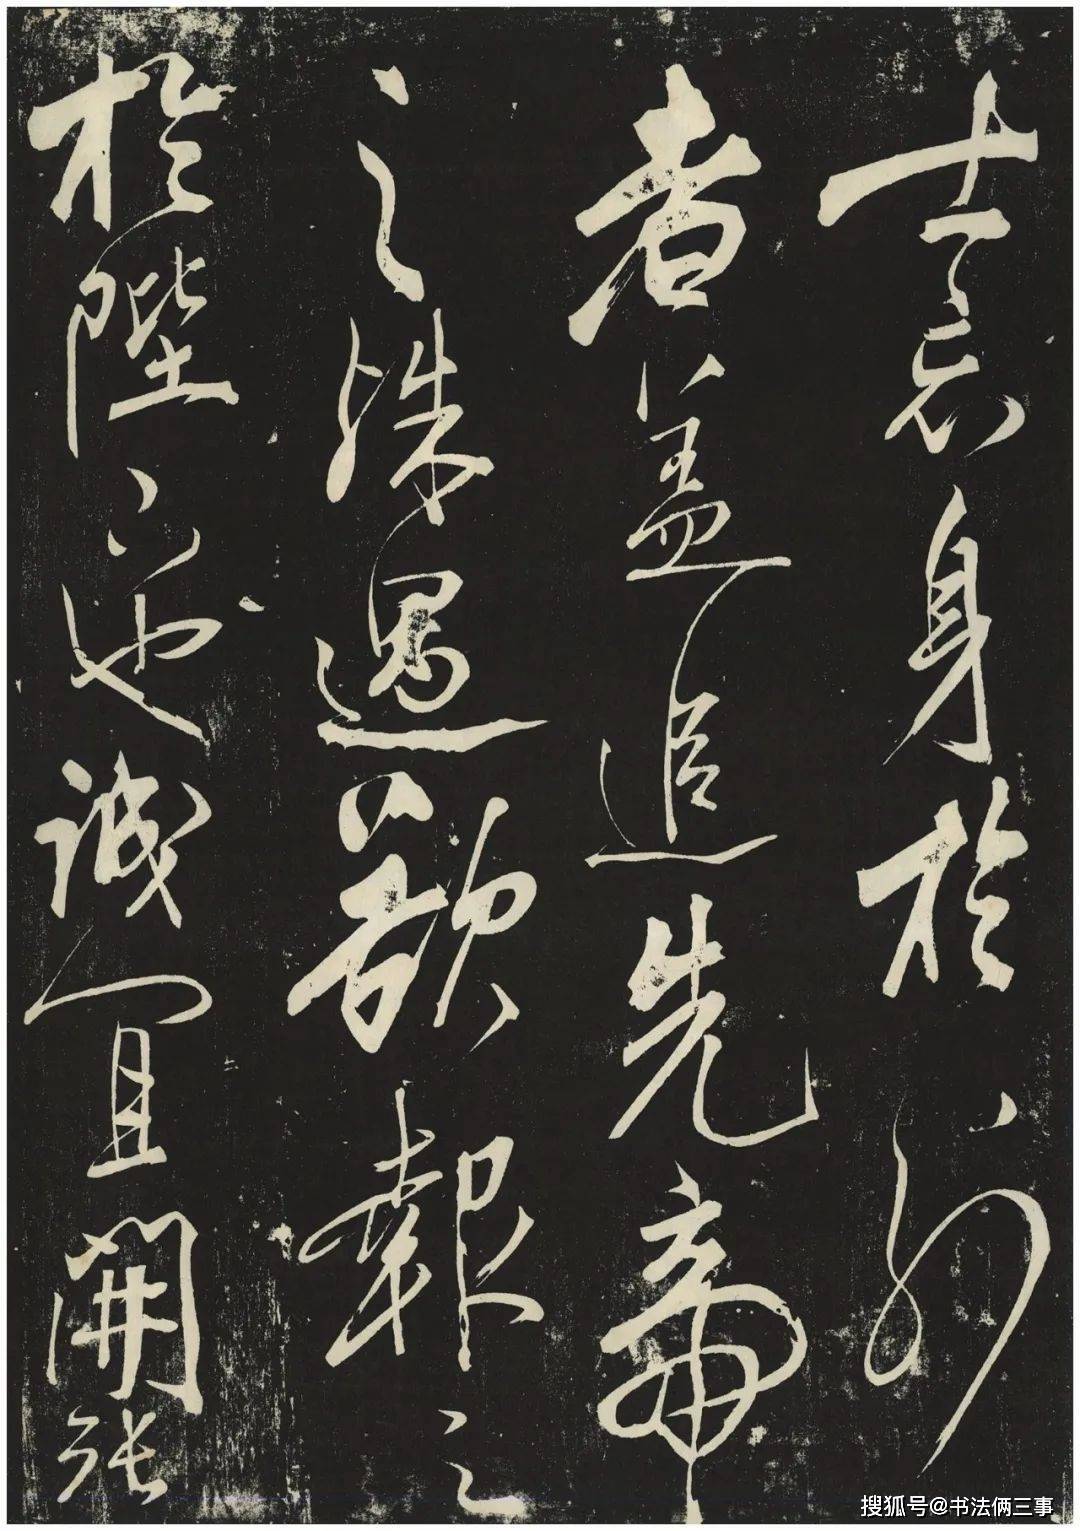 士忘身於外
者盖追先帝
之殊遇欲報之
於陛下也誠宜開張
搜狐号@书法俩三事